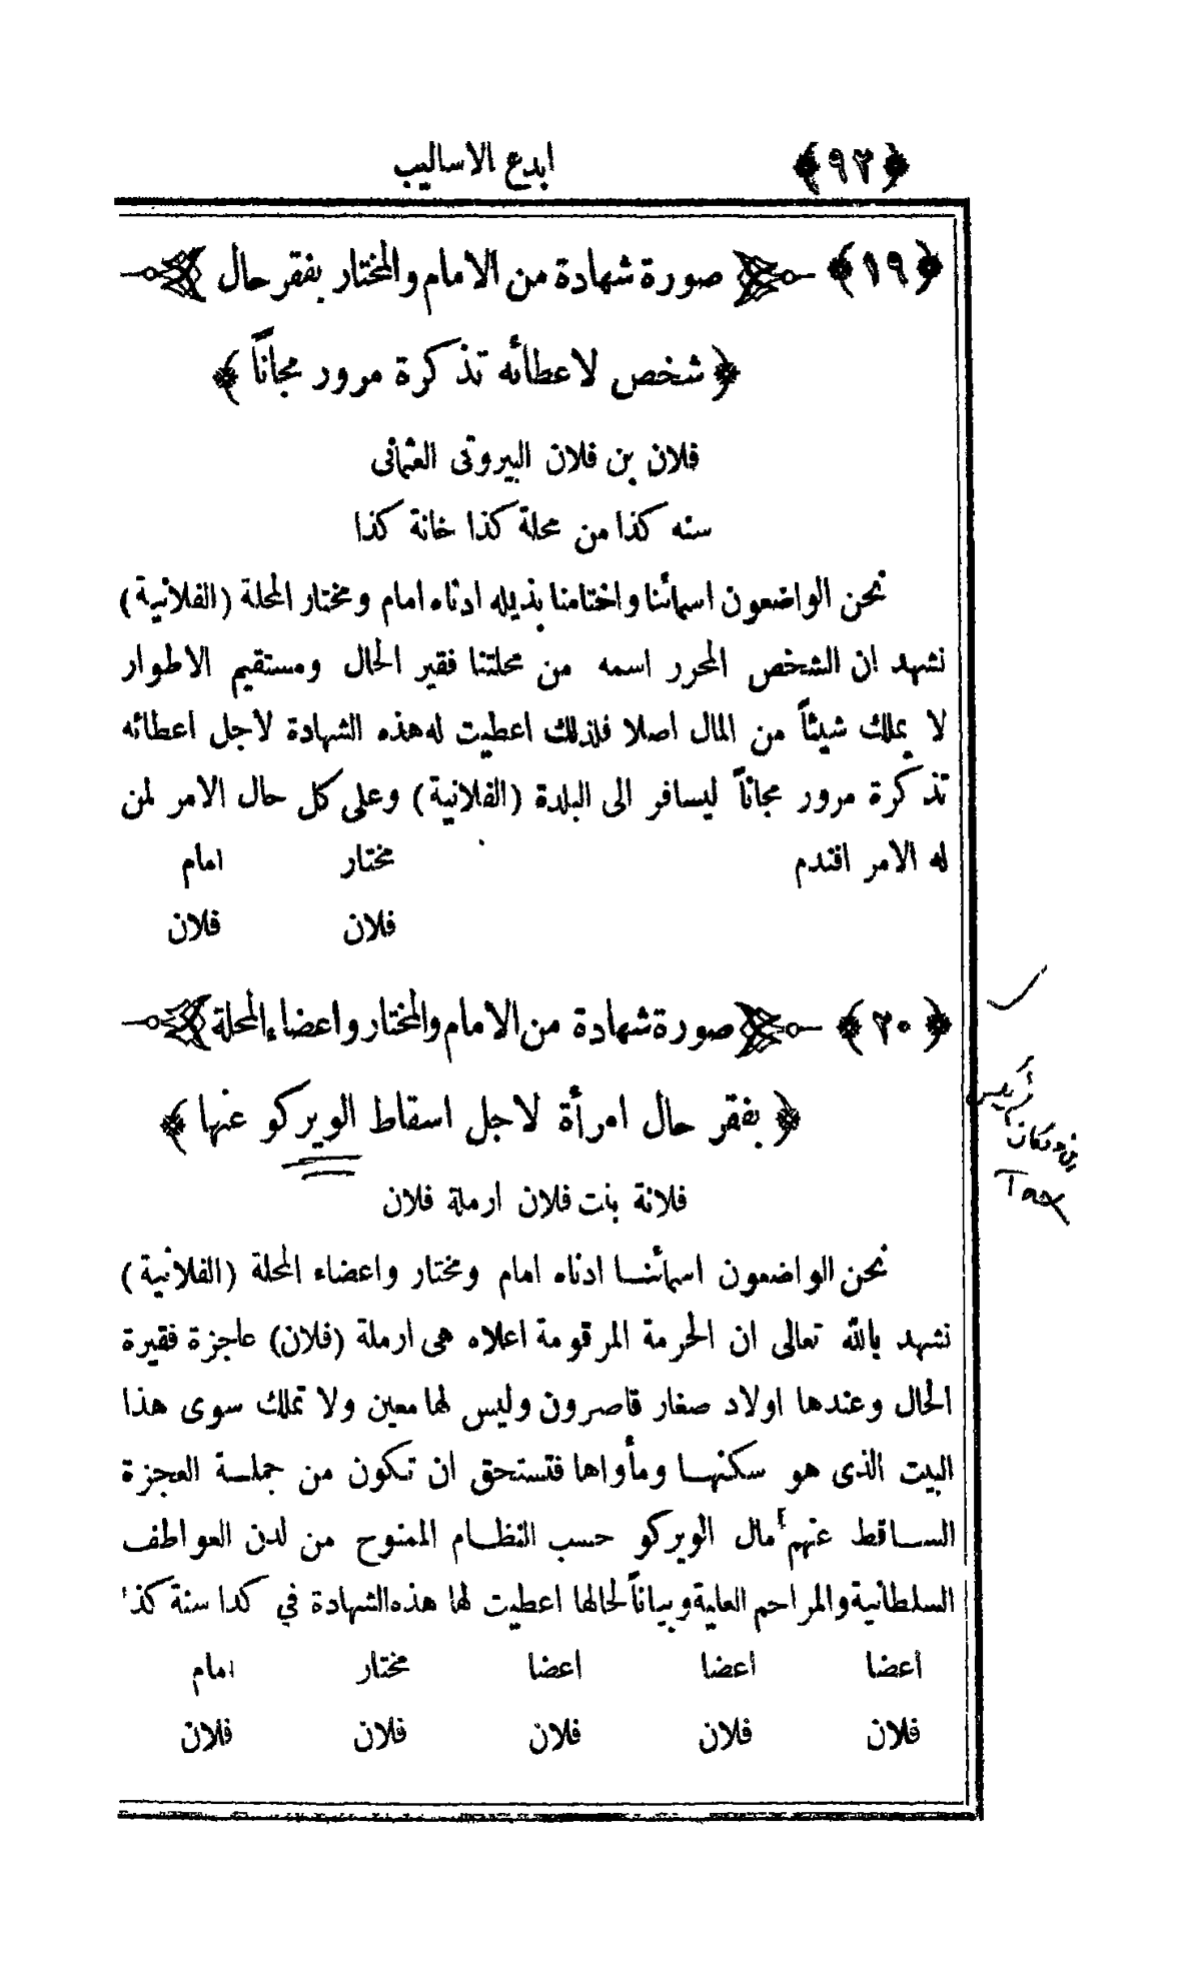 ﴿٩٢﴾ ابدع الاساليب
﴿١٩﴾ صورة شهادة من الامام والمختار بفقر حال
﴿ شخص لاعطائه تذكرة مرور مجاناً ﴾
فلان بن فلان البيروتى العثمانى
سنه كذا من محلة كذا خانة كذا
نحن الواضعون اسمائنا واختامنا بذيله ادناه امام ومختار المحلة (الفلانية)
نشهد ان الشخص المحرر اسمه من محلتنا فقير الحال ومستقيم الاطوار
لا يملك شيئاً من المال اصلا فلذلك اعطيت له هذه الشهادة لاجل اعطائه
تذكرة مرور مجاناً ليسافر الى البلدة (الفلانية) وعلى كل حال الامر لمن
له الامر افندم مختار امام
فلان فلان
﴿٢٠﴾ صورة شهادة من الامام والمختار واعضاء المحلة
﴿ بفقر حال امرأة لاجل اسقاط الويركو عنها ﴾
فلانة بنت فلان ارملة فلان
نحن الواضعون اسمائنا ادناه امام ومختار واعضاء المحلة (الفلانية)
نشهد بالله تعالى ان الحرمة المرقومة اعلاه هى ارملة (فلان) عاجزة فقيرة
الحال وعندها اولاد صغار قاصرون وليس لها معين ولا تملك سوى هذا
البيت الذى هو سكنها ومأواها فتستحق ان تكون من جملة العجزة
الساقط عنهم مال الويركو حسب النظام الممنوح من لدن العواطف
السلطانية والمراحم العلية وبياناً لحالها اعطيت لها هذه الشهادة في كدا سنة كذا
اعضا اعضا اعضا مختار امام
فلان فلان فلان فلان فلان
Tax